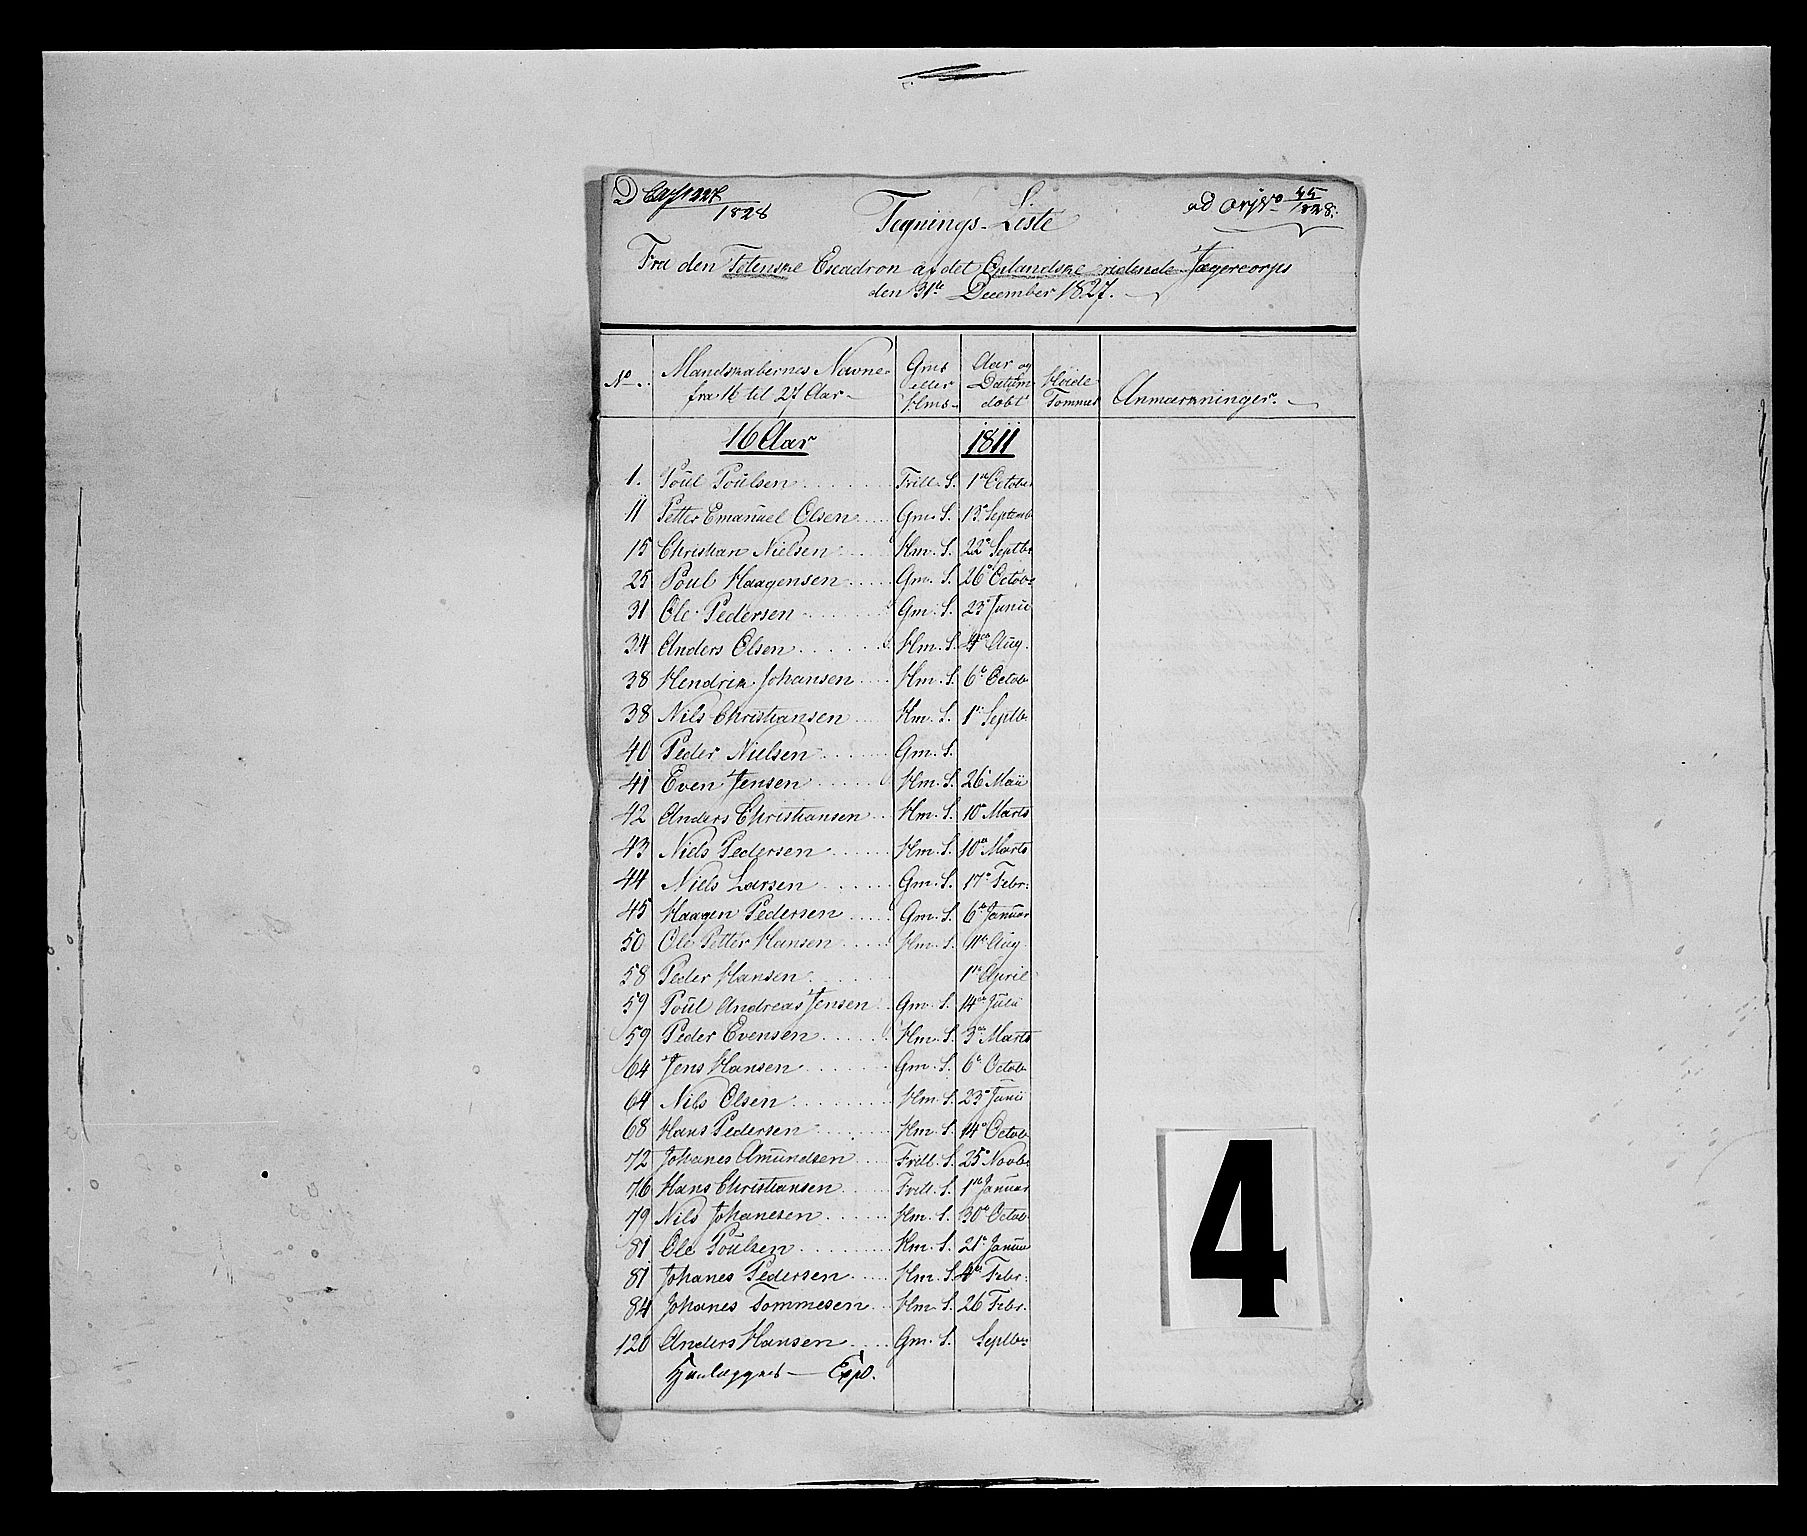 1828
ad Orj No 45/1828.
Tegnings-Liste
Fra den Totenske Escadron af det Oplandske ridende Jægercorps
den 31te December 1827.
No. Mandskabernes Navne fra 16 til 27 Aar Gms eller Hms Aar og Datum døbt Høide Tommer Anmærkninger.
16 Aar 1811
1. Poul Poulsen Frill. S. 1te October
11 Petter Emanuel Olsen Gm. S. 13de Septemb
15 Christian Nielsen Hm. S. 22de Septbr
25 Poul Haagensen Gm. S. 26de Octobr
31 Ole Pedersen Gm. S. 23de Junii
34 Anders Olsen Hm. S. 4de Aug.
38 Hendrik Johansen Hm. S. 6te Octob
38 Nils Christiansen Hm. S. 1te Septb
40 Peder Nielsen Gm. S.
41 Even Jensen Hm. S. 26 Maii
42 Anders Christiansen Hm. S. 10de Marts
43 Niels Pedersen Hm. S. 10de Marts
44 Niels Larsen Gm. S. 17de Febr:
45 Haagen Pedersen Gm. S. 6te Januar
50 Ole Petter Hansen Hm. S. 11te Aug.
58 Peder Hansen 1te April
59 Poul Andreas Jensen Gm. S. 14de Julii
59 Peder Evensen Hm. S. 3de Marts
64 Jens Hansen Gm. S. 6te Octob
64 Nils Olsen Hm. S. 23de Junii
68 Hans Pedersen Hm. S. 14de Octob
72 Johanes Amundsen Frill. S. 25de Novbr
76 Hans Christiansen Frill. S. 1te Januar
79 Nils Johanesen Hm. S. 30te Octob
81 Ole Poulsen Hm. S. 21de Januar
81 Johanes Pedersen Hm. S. 4de Febr:
84 Johanes Tommesen Hm. S. 26 Febr.
120 Anders Hansen Gm. S. Septbr
Henlægges — Exp.
4